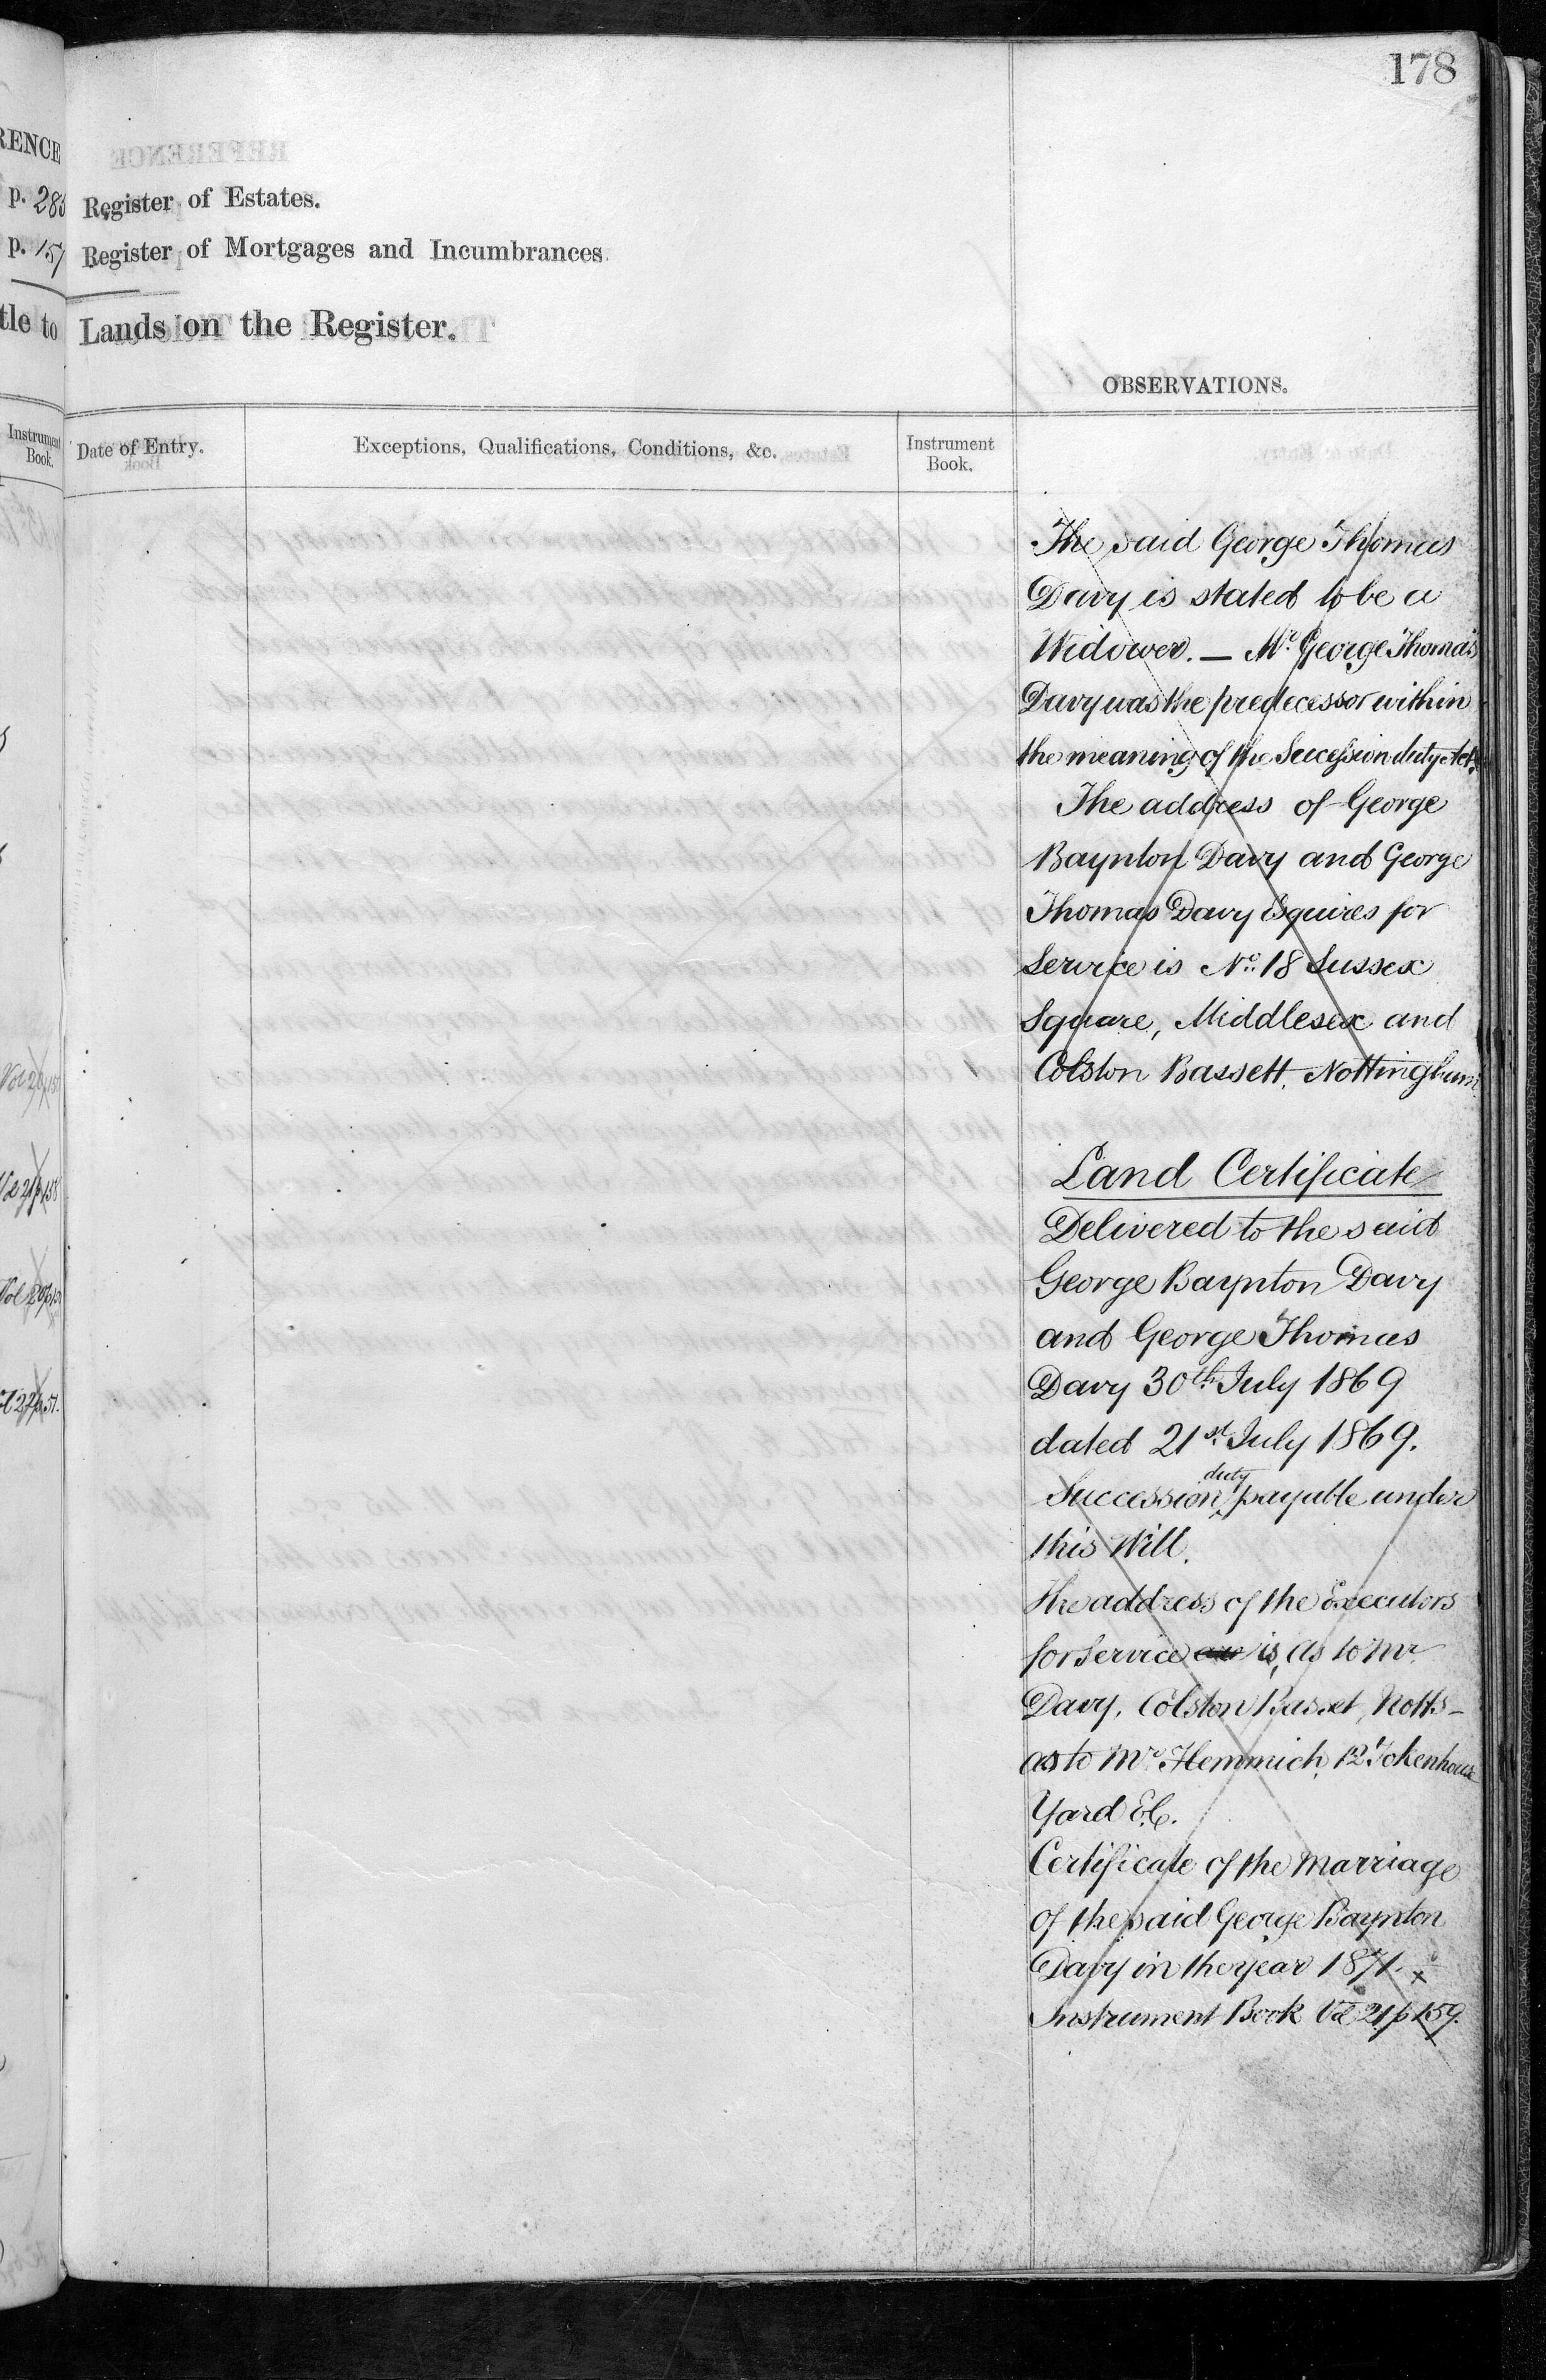 178
RENCE
p. 28
Register of Estates.
p. 157
Register of Mortgages and Incumbrances.
tle to
Lands on the Register.
OBSERVATIONS.
Instrument Book.
Date of Entry.
Exceptions, Qualifications, Conditions, &c.
Instrument Book.
The said George Thomas
Davy is stated to be a
Widower. — Mr. George Thomas
Davy was the predecessor within
the meaning of the Succession duty Act.
The address of George
Baynton Davy and George
Thomas Davy Esquires for
Service is No. 18 Sussex
Square, Middlesex and
Colston Bassett, Nottingham
Land Certificate
Delivered to the said
George Baynton Davy
and George Thomas
Davy 30th July 1869
dated 21st July 1869.
Succession duty payable under
this Will.
The address of the Executors
for service are is, as to Mr
Davy, Colston Basset, Notts –
as to Mr Hemmich, 12 Tokenhouse
Yard E.C.
Certificate of the marriage
of the said George Baynton
Davy in the year 1871. x
Instrument Book Vol 21 p 159.